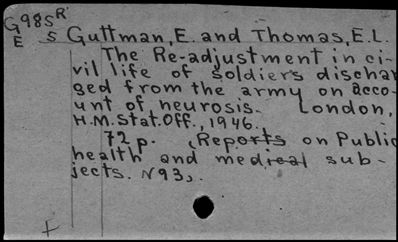 G985R
E 5 Guttman, E. and Thomas, E.L.
The Re-adjustment in ci-
vil life of soldiers dischar
ged from the army on acco-
unt of neurosis. London,
H.M.Stat.Off., 1946.
72 p. (Reports on Public
health and medical sub-
jects. N93).